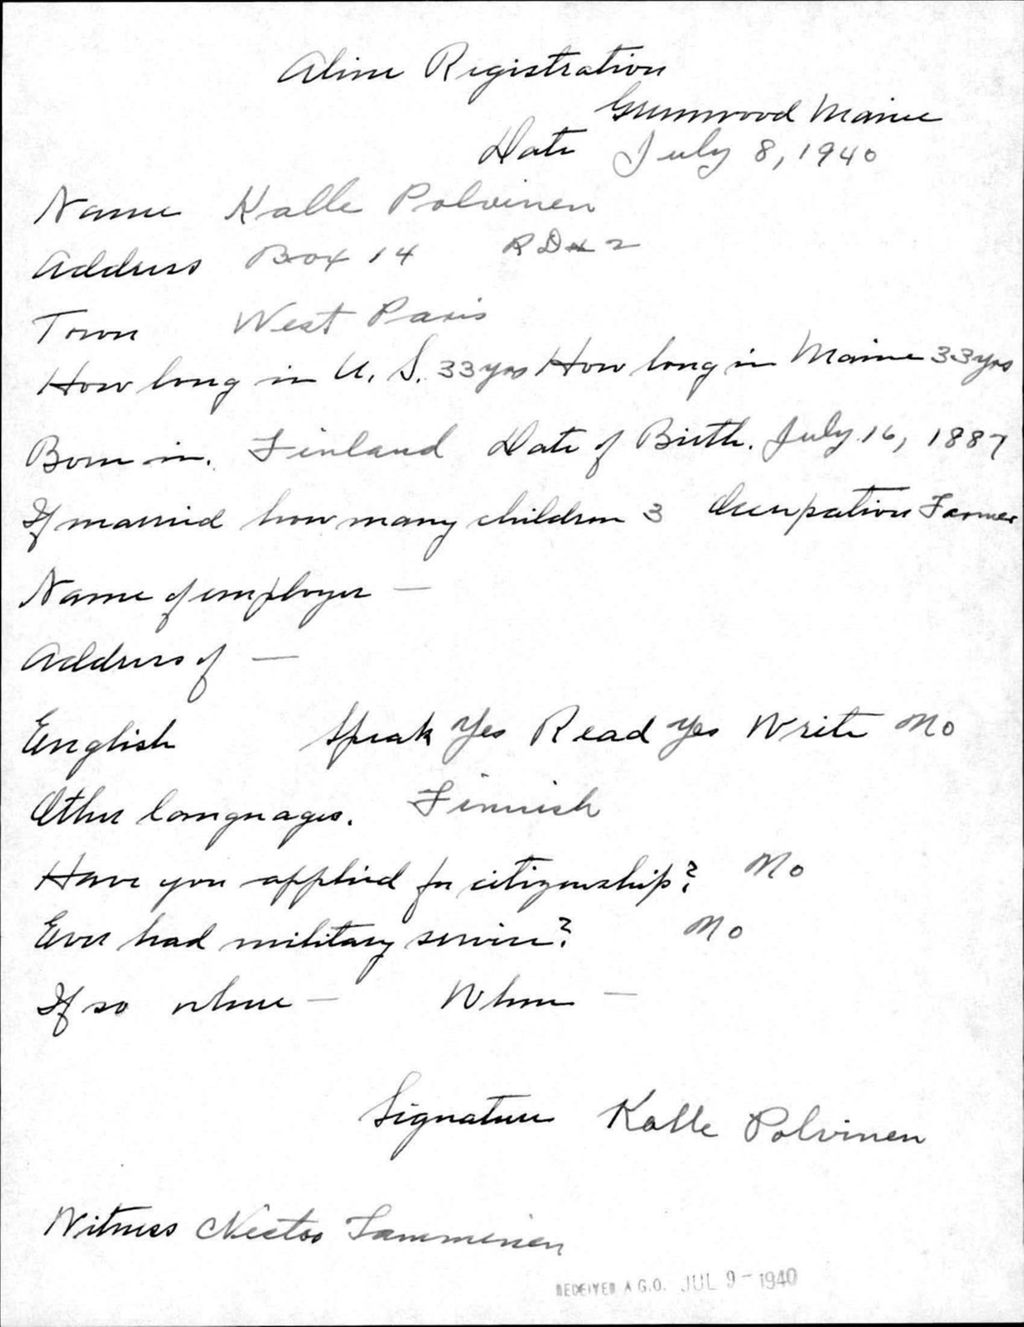 Aline Registration
Greenwood Maine
Date July 8, 1940
Name Kalle Polvinen
Address Box 14 RD# 2
Town West Paris
How long in U. S. 33 yrs How long in Maine 33 yrs
Born in. Finland Date of Birth. July 16, 1887
If married how many children 3 Occupation Farmer
Name of employer —
Address of —
English Speak Yes Read Yes Write No
Other languages. Finnish
Have you applied for citizenship? No
Ever had military service? No
If so where — When —
Signature Kalle Polvinen
Witness Nestor Tamminen
RECEIVED A.G.O. JUL 9 - 1940